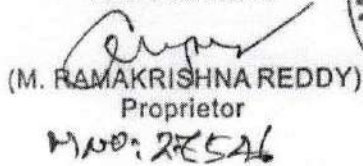 (M. RAMAKRISHNA REDDY)
Proprietor
M NO: 27546